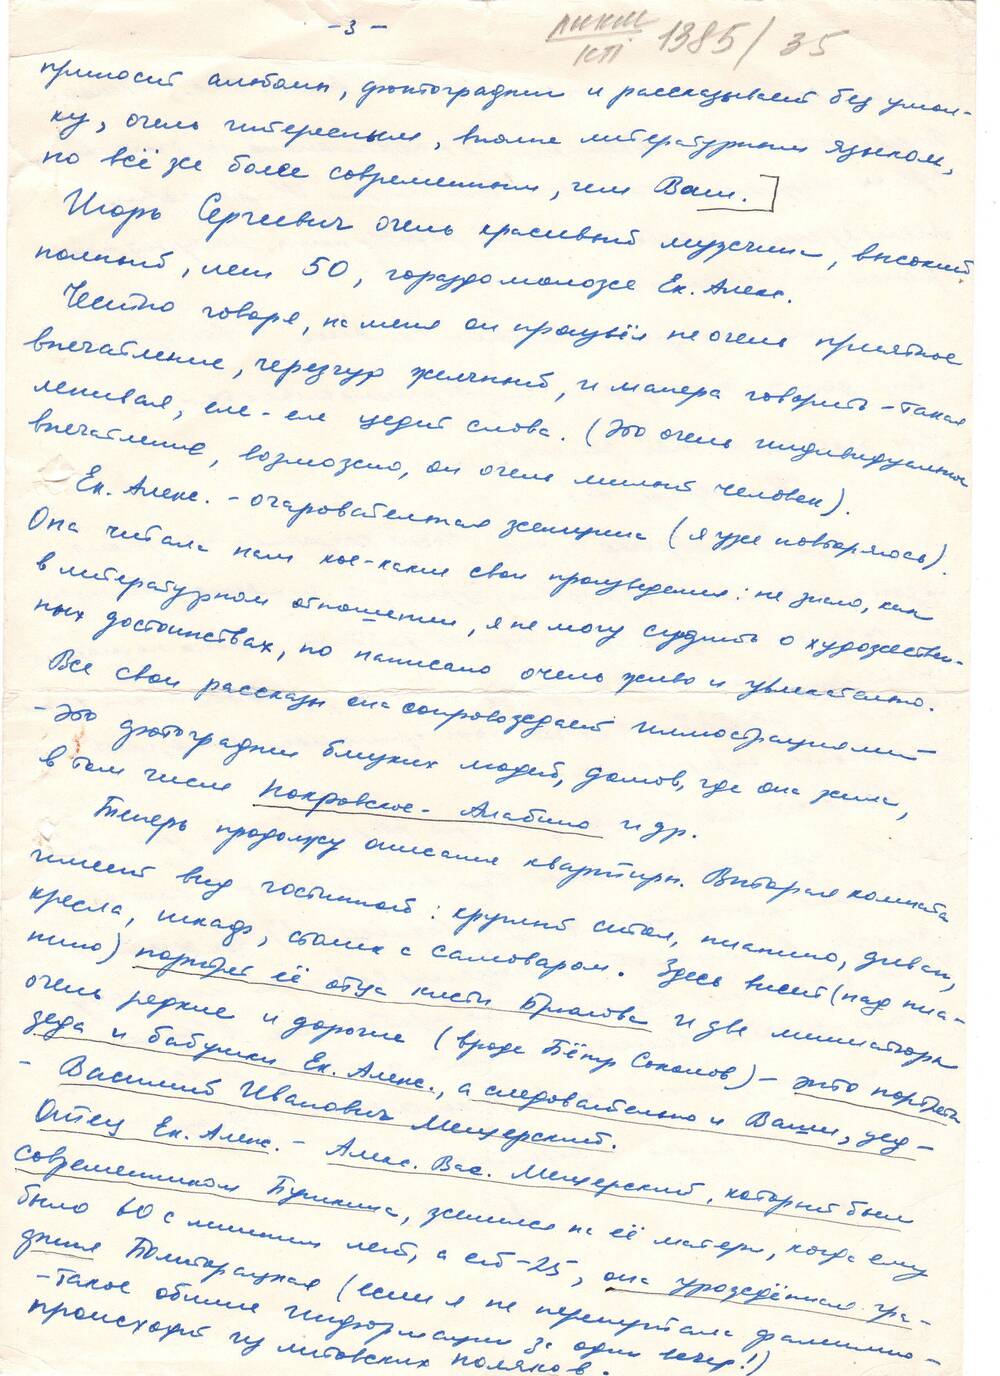 - 3 -
КП 1385/35
приносит альбомы, фотографии и рассказывает без умол-
ку, очень интересным, вполне литературным языком,
но всё же более современным, чем Ваш.]
Игорь Сергеевич очень красивый мужчина, высокий
полный, лет 50, гораздо моложе Ек. Алекс.
Честно говоря, на меня он произвёл не очень приятное
впечатление, черезчур желчный, и манера говорить – такая
ленивая, еле-еле цедит слова. (Это очень индивидуальное
впечатление, возможно, он очень милый человек).
Ек. Алекс. – очаровательная женщина (я уже повторяюсь).
Она читала нам кое-какие свои произведения: не знаю, как
в литературном отношении, я не могу судить о художествен-
ных достоинствах, но написано очень живо и увлекательно.
Все свои рассказы она сопровождает иллюстрациями
– это фотографии близких людей, домов, где она жила,
в том числе Покровское-Алабино и др.
Теперь продолжу описание квартиры. Вторая комната
имеет вид гостинной: круглый стол, пианино, диван,
кресла, шкаф, столик с самоваром. Здесь висит (над пиа-
нино) портрет её отца кисти Брюлова и две миниатюры
очень редкие и дорогие (вроде Пётр Соколов) – это портреты
деда и бабушки Ек. Алекс., а следовательно и Ваши, дед –
– Василий Иванович Мещерский.
Отец Ек. Алекс. – Алекс. Вас. Мещерский, который был
современником Пушкина, женился на её матери, когда ему
было 60 с лишним лет, а ей – 25, она урождённая гра-
финя Полторацкая (если я не перепутала фамилию –
– такое обилие информации за один вечер!)
происходит из литовских поляков.